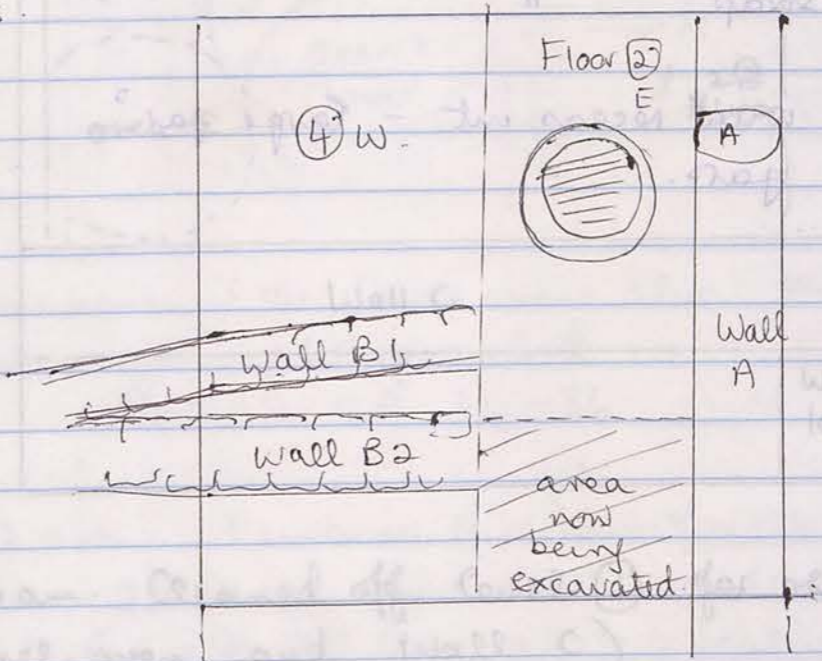 Floor 2
E
4 W.
A
Wall
A
Wall B1
Wall B2
area
now
being
excavated